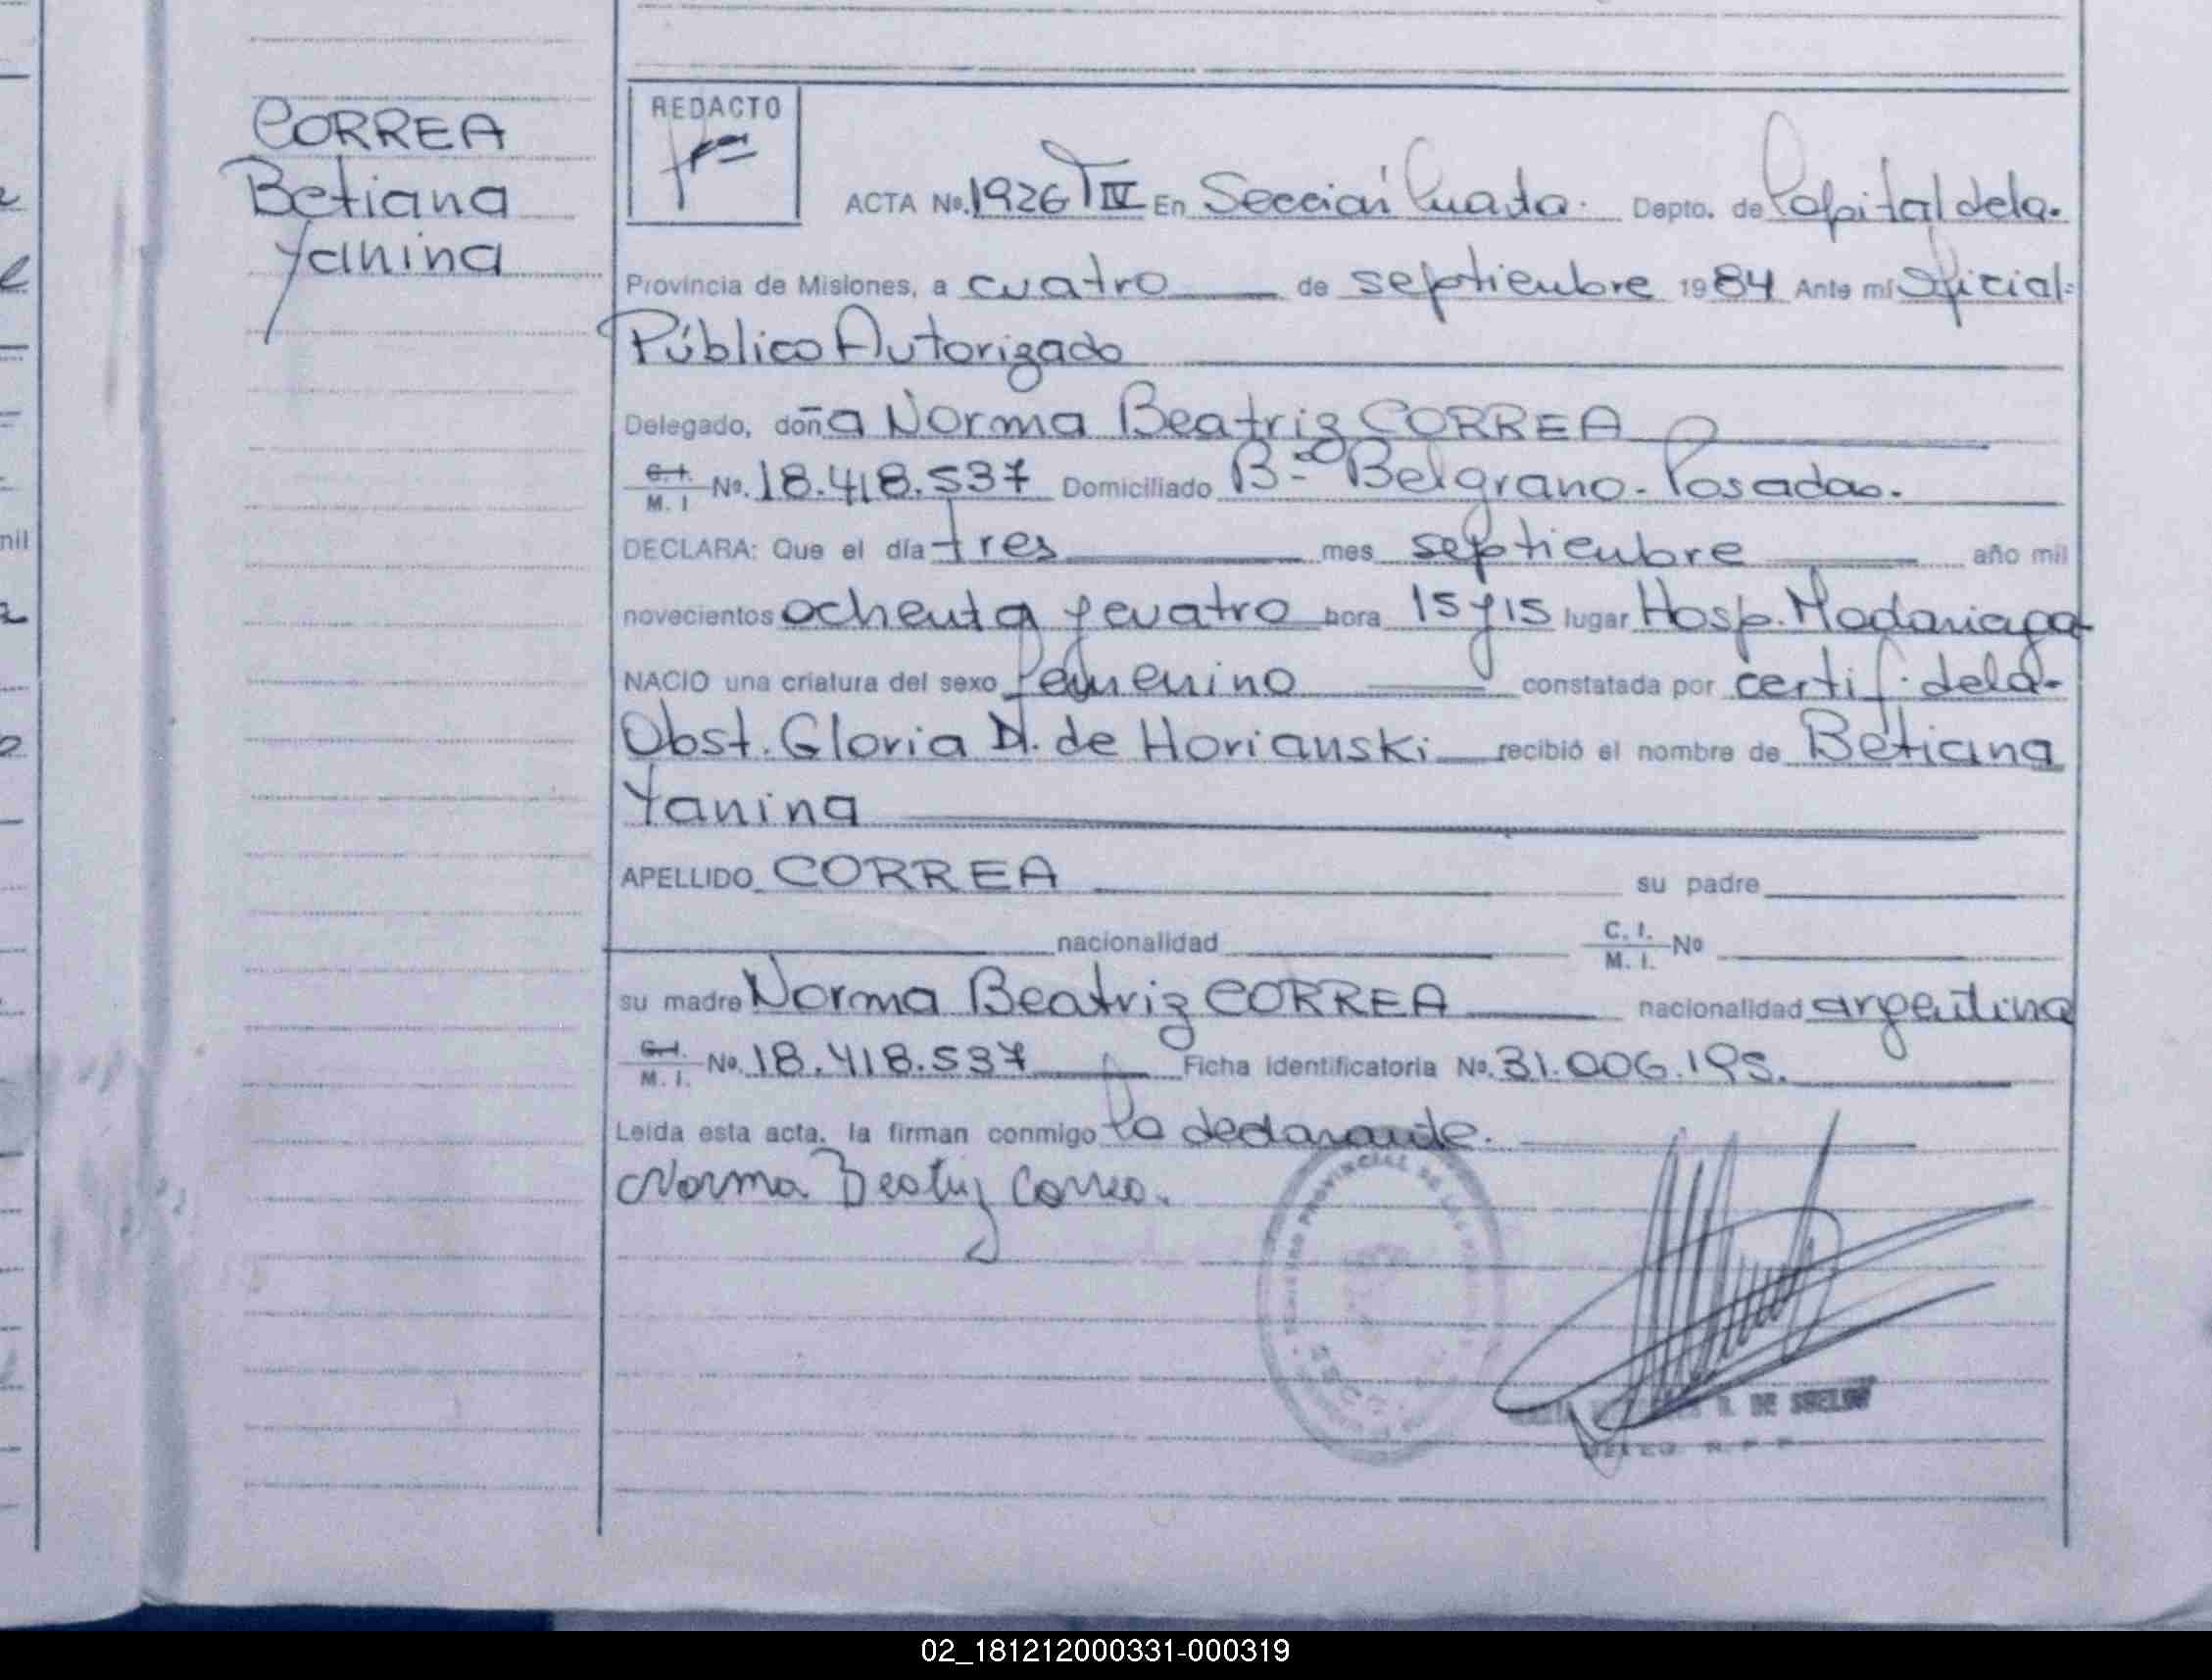 CORREA
Betiana
Yanina
REDACTO
ACTA No. 1926 T IV En Sección Cuarta. Depto. de Capital de la.
Provincia de Misiones, a cuatro de septiembre 1984 Ante mí Oficial
Público Autorizado
Delegado, doña Norma Beatriz CORREA
C.I. M. I No. 18.418.537 Domiciliado Bº Belgrano - Posadas.
DECLARA: Que el día tres mes septiembre año mil
novecientos ochenta y cuatro hora 15 y 15 lugar Hosp. Madariaga
NACIO una criatura del sexo femenino constatada por certif. de la
Obst. Gloria N. de Horianski recibió el nombre de Betiana
Yanina
APELLIDO CORREA su padre
nacionalidad C. I. M. I. No
su madre Norma Beatriz CORREA nacionalidad argentina
C.I. M. I. No. 18.418.537 Ficha Identificatoria No. 31.006.195.
Leída esta acta, la firman conmigo la declarante.
Norma Beatriz Correa.
PROVINCIAL DE LAS
DE
02_181212000331-000319